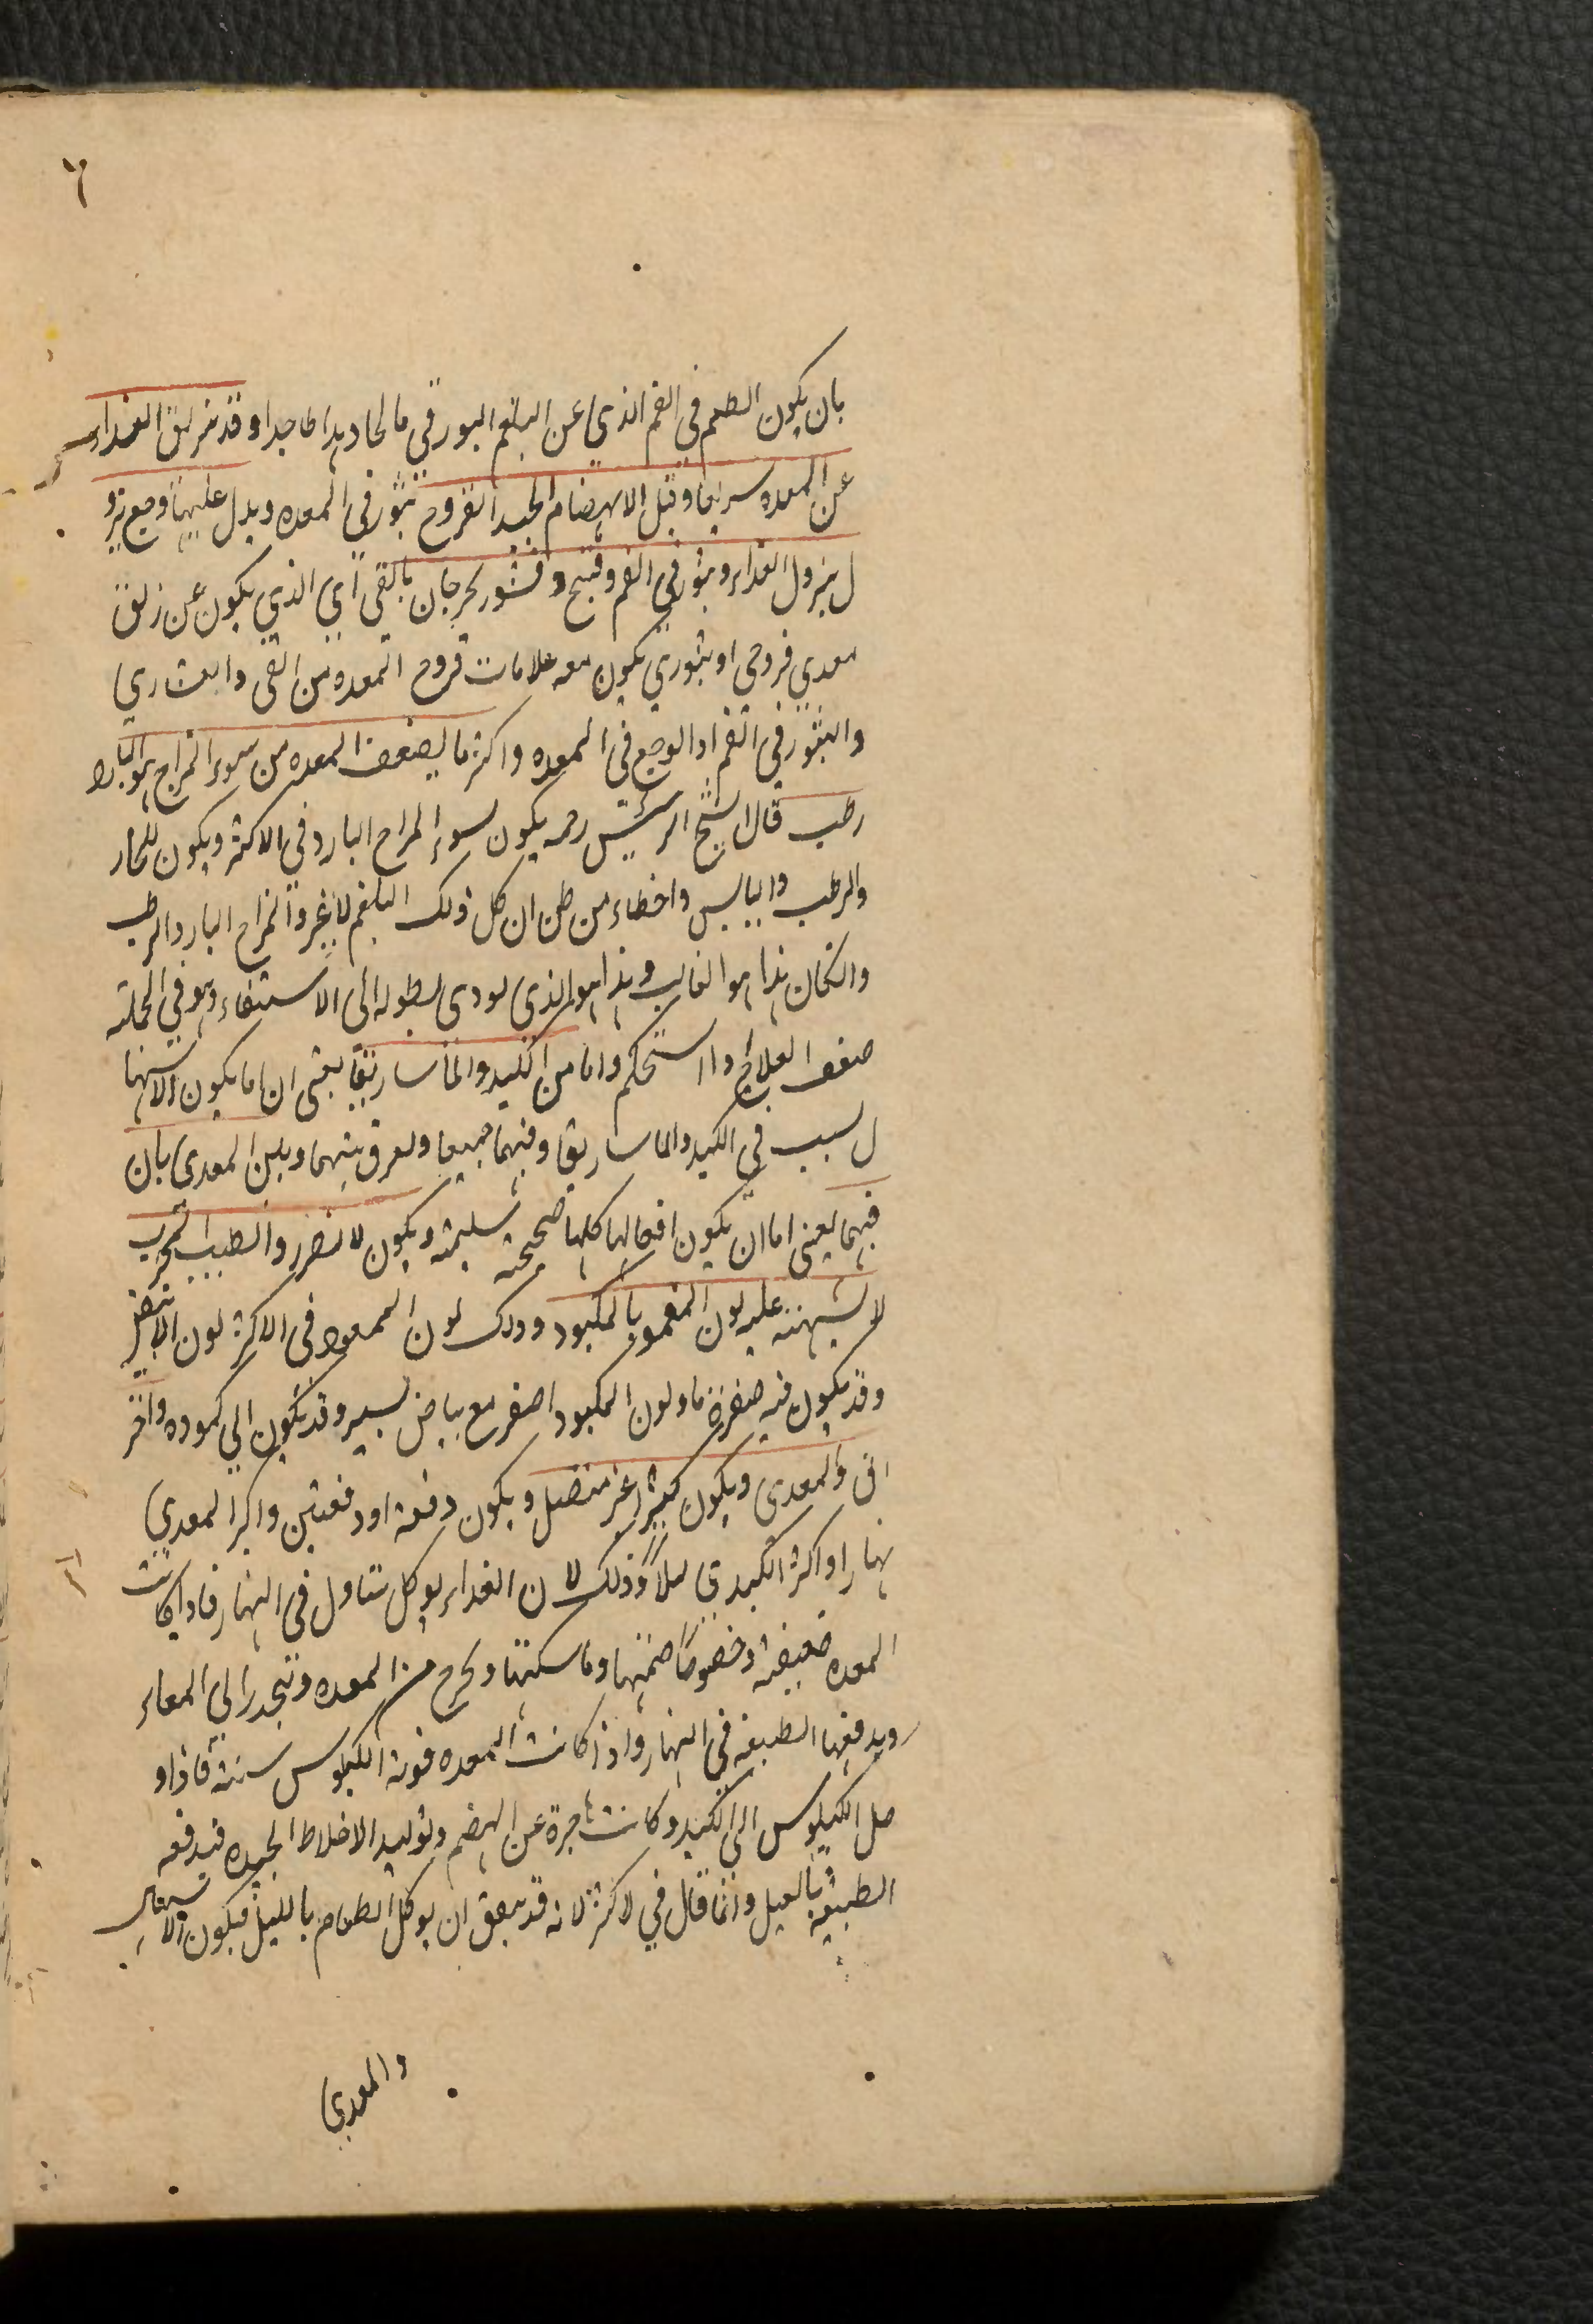 ٦
بان يكون الطعم في الفم الذي عن البلغم البورقي مالحا وهذا طا جدا وقد يزلق الغذاء
عن المعده سريعا وقبل الانهضام الجيد القروح بثور في المعده ويدل عليها وجع نزو
ل ينزول الغذاء وبثور في الفم وقيح وقشور يخرجان بالقي اي الذي يكون عن زلق
معدي قروحي او بثوري يكون معه علامات قروح المعده من القي
والبثور في الفم اوالوجع في المعده واكثر ما يضعف المعده من سوء المزاج هو البارد
رطب قال الشيخ الرئيس رحمه يكون لسوء المزاج البارد في الاكثر ويكون للحار
والرطب واليابس واخطاء من ظن ان كل ذلك البلغم لا غير والمزاج البارد الرطب
وانكان هذا هو الغالب وهذا هو الذي يودي بطوله الى الاستسقاء وهو في الجملة
صعف العلاج اذا استحكم واما من الكبد والماساريقا يعنى ان اما يكون الاسها
ل لسبب في الكبد والماساريقا وفيهما جميعا ويفرق بينهما وبين المعدي بان
فيهما يعنى اما ان يكون افعالها كلها صحيحة سليمة ويكون لا تضرر والطبيب المجرب
لا يشبهته عليه لون الممعود بالمكبود وذلك لون الممعود في الاكثر لون الابيض
وقد يكون فيه صفرة ما ولون المكبود اصفر مع بياض يسير وقد يكون الي كموده واخر
اق والمعدي ويكون كثيرا غير متصل ويكون دفعة او دفعتين واكثر المعدي
نهارا واكثر الكبدي ليلاً وذلك لان الغذاء يوكل يتناول في النهار فاذا كانت
المعده ضعيفة وخصوصًا هضمتها وماسكتها وتخرج من المعده وينحدر الي المعاء
ويدفعها الطبيعة في النهار واذا كانت المعده قوية الكيلوس سنته فاذا و
صل الكيلوس الي الكبد وكانت عاجزة عن الهضم وتوليد الاخلاط الجيده فيدفعه
الطبيعة بالليل وانما قال في لاكثر لانه قد يتفق ان يوكل الطعام بالليل فيكون الاسهال
والمعدي